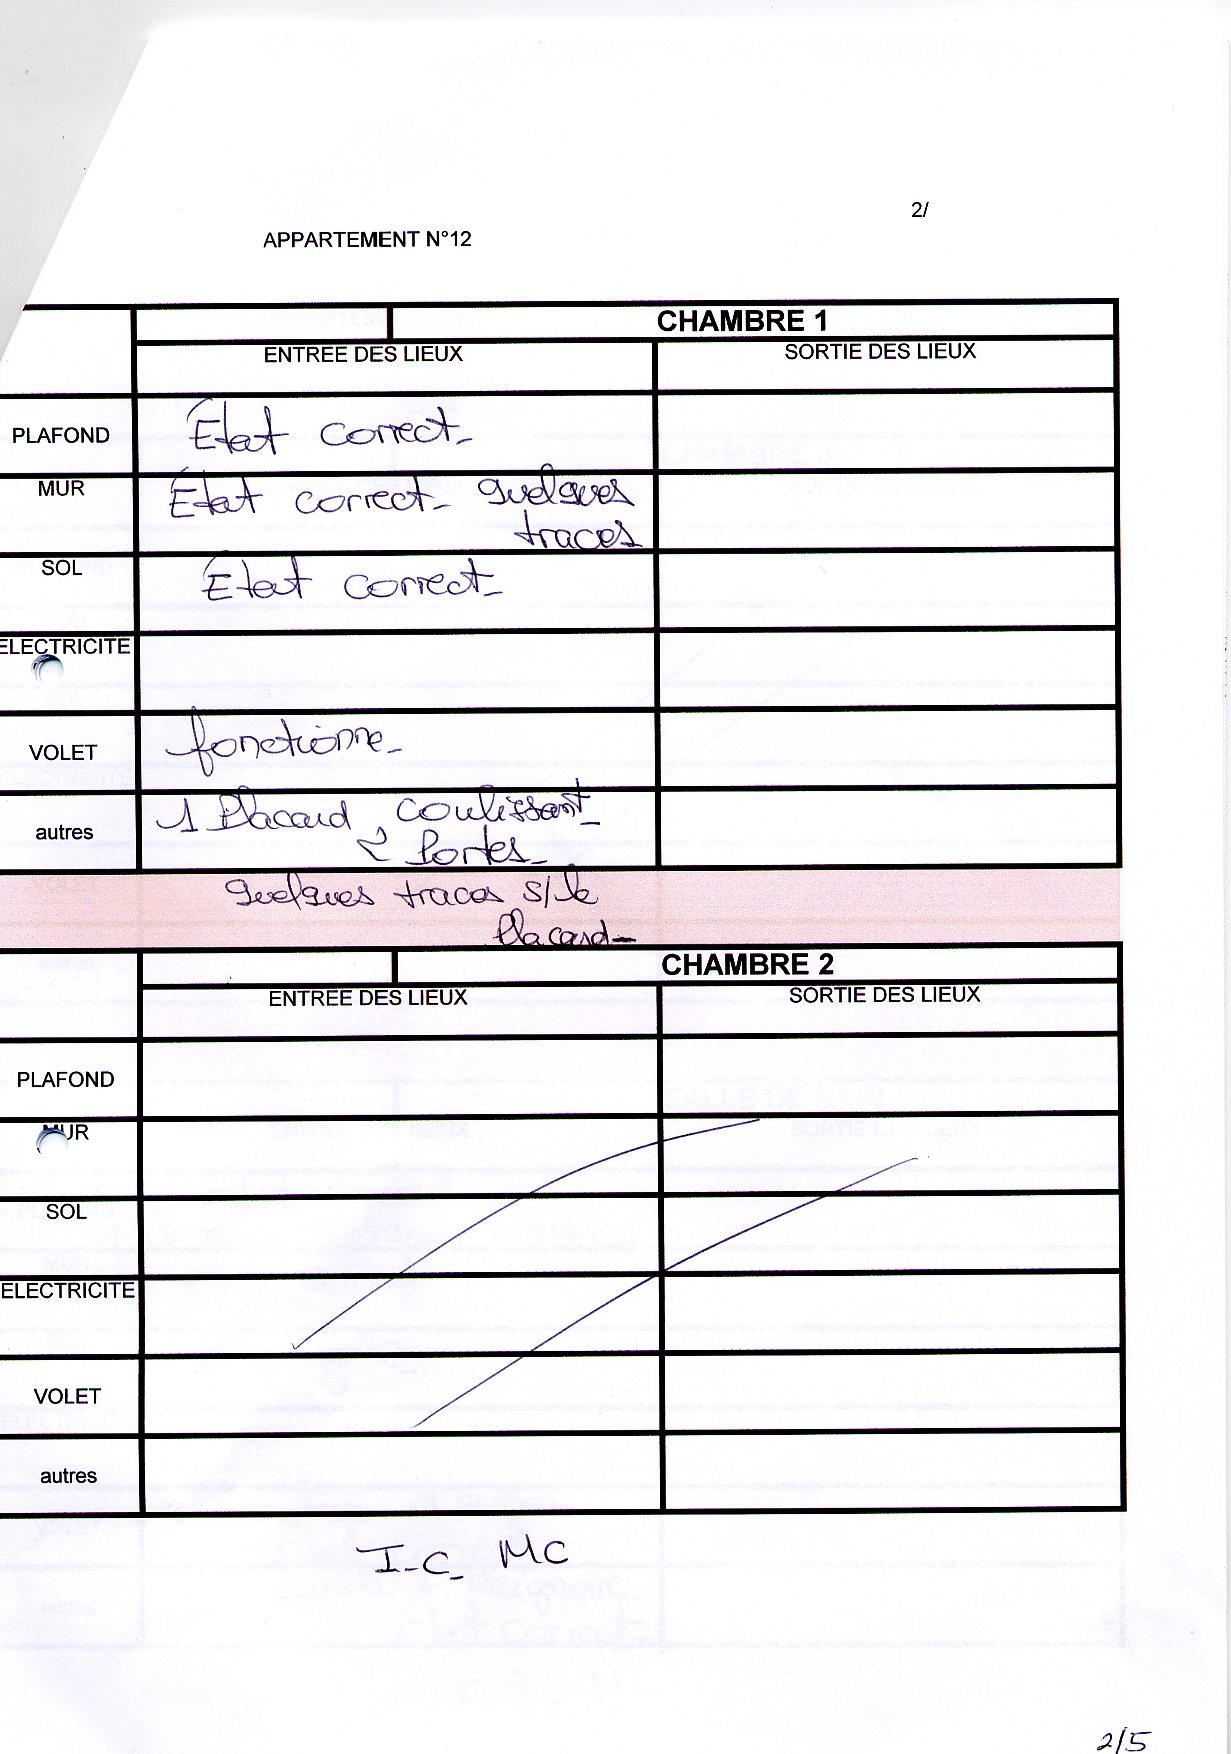 2/
APPARTEMENT N°12
CHAMBRE 1
ENTREE DES LIEUX SORTIE DES LIEUX
PLAFOND État correct_
MUR État correct_ quelques
traces
SOL État correct_
ELECTRICITE
VOLET fonctionne_
autres 1 Placard coulissant_
2 Portes_
quelques traces s/le
Placard_
CHAMBRE 2
ENTREE DES LIEUX SORTIE DES LIEUX
PLAFOND
MUR
SOL
ELECTRICITE
VOLET
autres
I_C_ MC
2/5